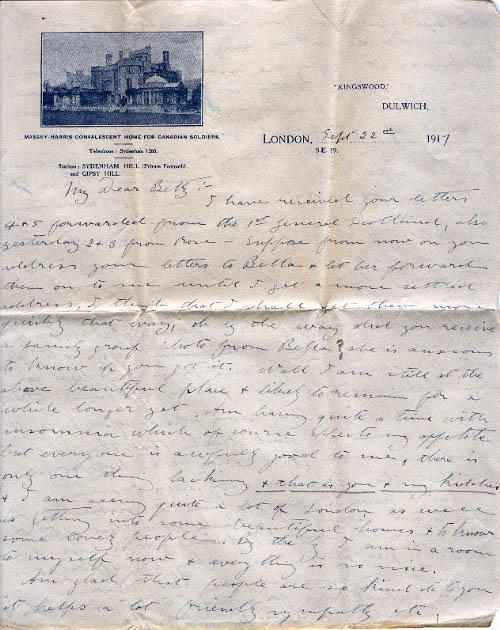 "KINGSWOOD,"
DULWICH,
MASSEY-HARRIS CONVALESCENT HOME FOR CANADIAN SOLDIERS.
LONDON, Sept 22nd 1917
S.E. 19.
Telephone: Sydenham 1260.
Station: SYDENHAM HILL (Private Footpath)
and GIPSY HILL.
My Dear Betty:-
I have received your letters
4 & 5 forwarded from the 1st General Scotland, also
yesterday 2 & 3 from Rose - Suppose from now on you
address your letters to Bella & let her forward
them on to me until I get a more settled
address, I think that I shall get them more
quickly that way; oh by the way did you receive
a family group photo from Bella? she is anxious
to know if you got it. Well I am still at the
above beautiful place & likely to remain for a
while longer yet. Am having quite a time with
insomnia which of course affects my appetite
but everyone is awfully good to me, there is
only one thing lacking & that is you & my kiddies
& I am seeing quite a lot of London as well
as getting into some beautiful homes & to know
some lovely people. By the I am in a room
to myself now & everything is so nice.
Am glad that people are so kind to you
it helps a lot friendly sympathy etc,